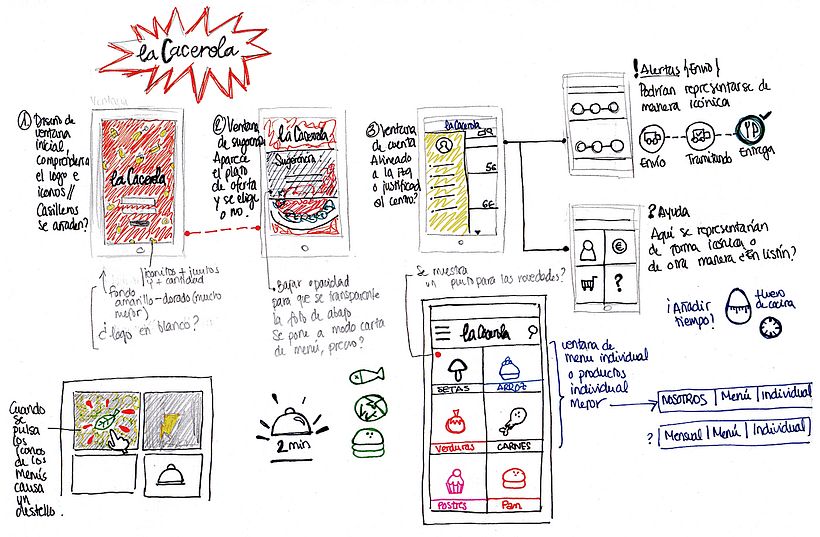 la Cacerola
Ventana
① Diseño de
ventana
inicial,
comprenderá
el logo e
iconos //
Casilleros
se añaden?
la Cacerola
② Ventana
de sugerencia
Aparece
el plato
de oferta
y se elige
o no.
la Cacerola
Sugerencia
③ Ventana
de cuenta
Alineado
a la izq
o justificado
al centro?
la Cacerola
5€
6€
! Alertas {Envío}
Podrían representarse de
manera icónica
Envío
Tramitando
Entrega
? Ayuda
Aquí se representarían
de forma icónica o
de otra manera ¿En listín?
€
?
¡Añadir
tiempo?
Huevo
de cocina
iconitos + juntos
y + cantidad
Fondo
amarillo-dorado (mucho
mejor)
¿logo en blanco?
• Bajar opacidad
para que se transparente
la foto de abajo
Se pone a modo carta
de menú, precio?
Se muestra
un punto para las novedades?
la Cacerola
SETAS
ARROZ
Verduras
CARNES
Postres
Pan
ventana de
menu individual
o productos
individual
mejor
NOSOTROS | Menú | Individual
? Mensual | Menú | Individual
Cuando
se
pulsa
los
iconos
de los
Menús
causa
un
destello.
2 min